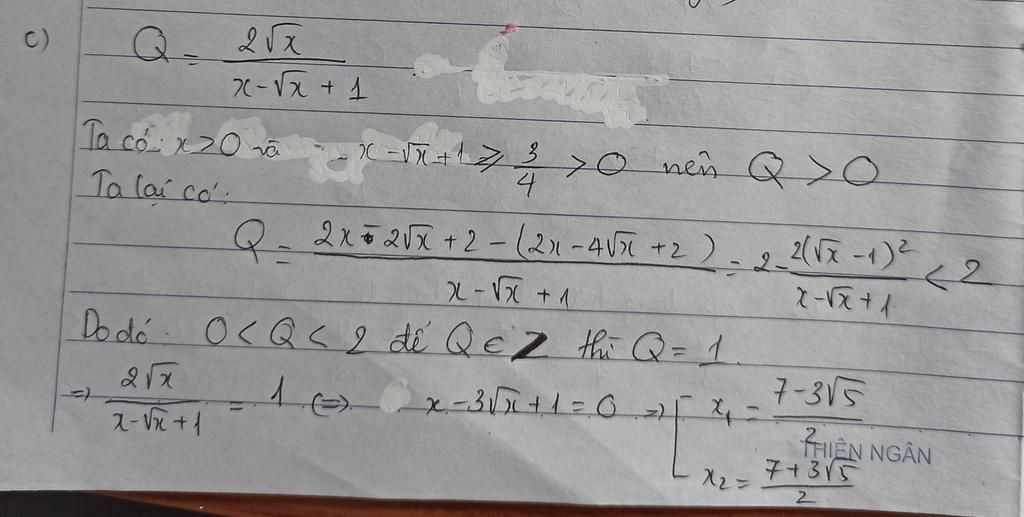 c) Q = 2√x / (x - √x + 1)
Ta có: x > 0 và x - √x + 1 ≥ 3/4 > 0 nên Q > 0
Ta lại có:
Q = (2x - 2√x + 2 - (2x - 4√x + 2)) / (x - √x + 1) = 2 - 2(√x - 1)² / (x - √x + 1) < 2
Do đó 0 < Q < 2 để Q ∈ Z thì Q = 1
⇒ 2√x / (x - √x + 1) = 1 ⇔ x - 3√x + 1 = 0 ⇒ [ x₁ = (7 - 3√5) / 2
THIÊN NGÂN
x₂ = (7 + 3√5) / 2